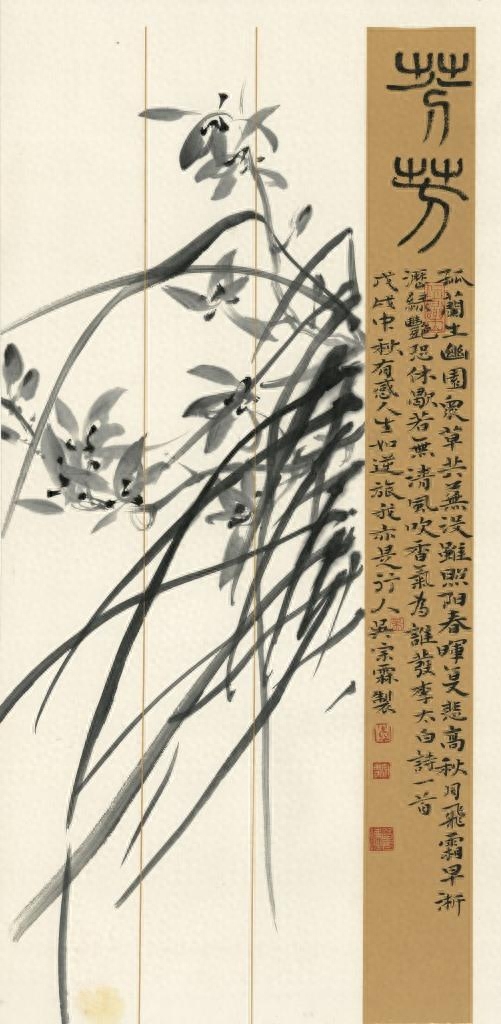 芬芳
孤蘭生幽園眾草共蕪沒雖照阳春暉复悲高秋月飛霜早淅
瀝綠艷恐休歇若無清風吹香氣為誰發李太白詩一首
戊戌中秋有感人生如逆旅我亦是行人吳宗霖製